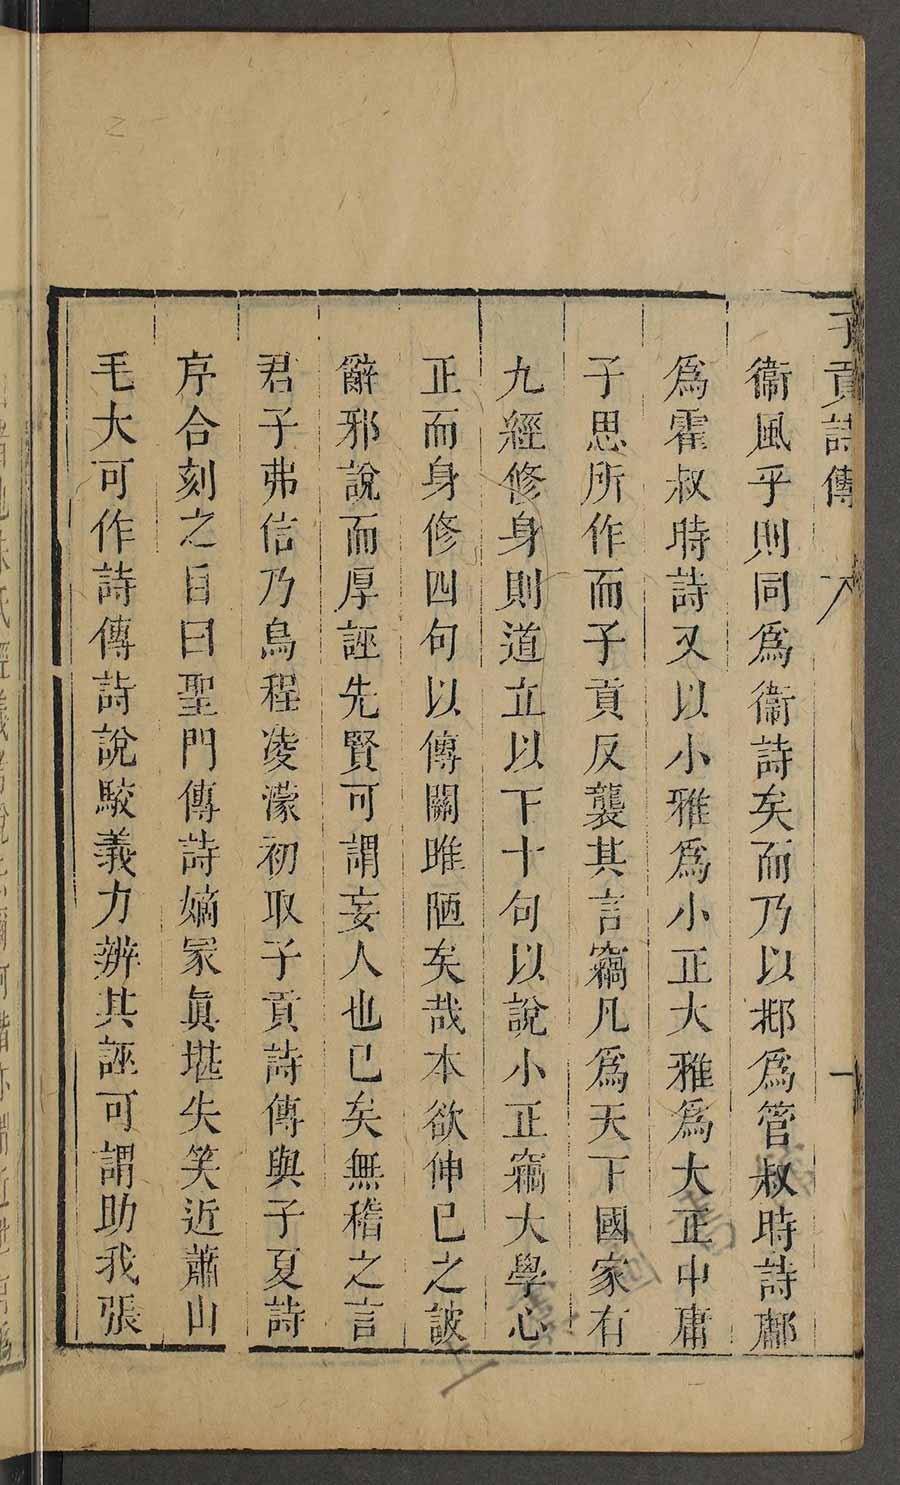 子貢詩傳
衞風乎則同爲衞詩矣而乃以邶爲管叔時詩鄘
爲霍叔時詩又以小雅爲小正大雅爲大正中庸
子思所作而子貢反襲其言竊凡爲天下國家有
九經修身則道立以下十句以說小正竊大學心
正而身修四句以傳關雎陋矣哉本欲伸已之詖
辭邪說而厚誣先賢可謂妄人也已矣無稽之言
君子弗信乃烏程凌濛初取子貢詩傳與子夏詩
序合刻之目曰聖門傳詩嫡冢眞堪失笑近蕭山
毛大可作詩傳詩說駮義力辨其誣可謂助我張